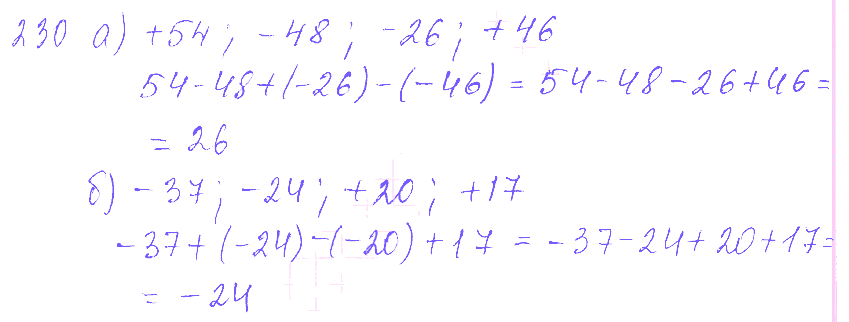 230 а) +54; -48; -26; +46
54-48+(-26)-(-46) = 54-48-26+46=
= 26
б) -37; -24; +20; +17
-37+(-24)-(-20)+17 = -37-24+20+17=
= -24